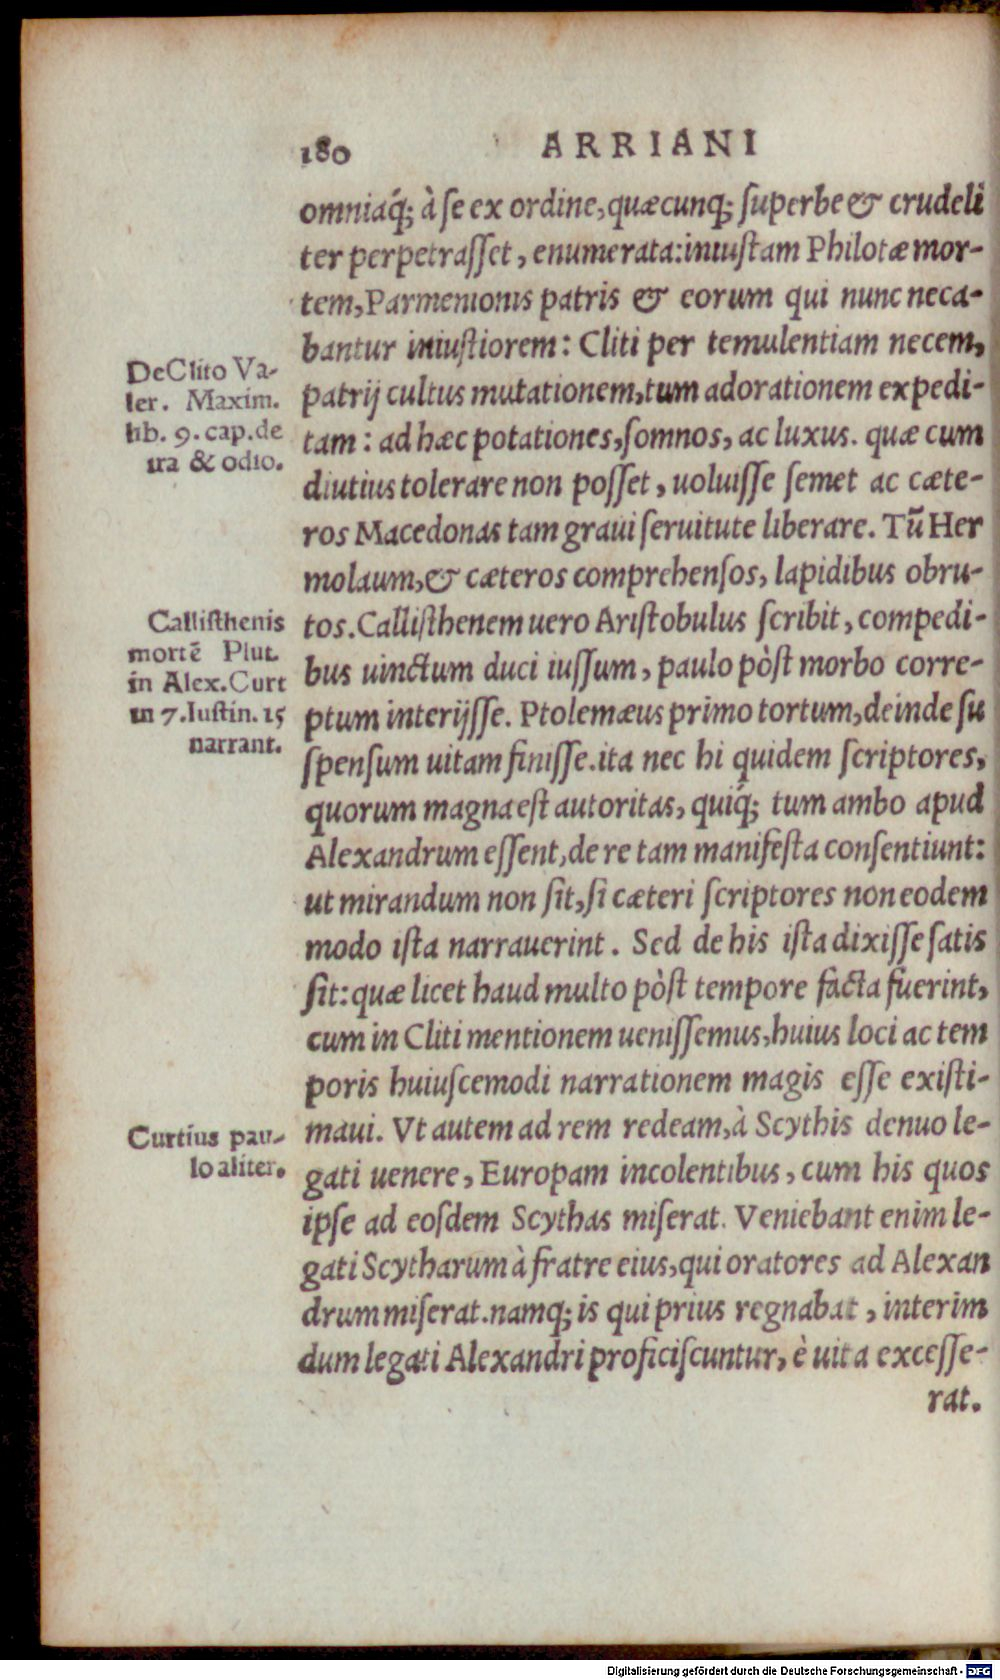 180 ARRIANI
omniaq́; à se ex ordine, quæcunq; superbe & crudeli
ter perpetrasset, enumerata: iniustam Philotæ mor-
tem, Parmenionis patris & eorum qui nunc neca-
bantur iniustiorem: Cliti per temulentiam necem,
patrij cultus mutationem, tum adorationem expedi-
tam: ad hæc potationes, somnos, ac luxus. quæ cum
diutius tolerare non posset, uoluisse semet ac cæte-
ros Macedonas tam graui seruitute liberare. Tũ Her
molaum, & cæteros comprehensos, lapidibus obru-
tos. Callisthenem uero Aristobulus scribit, compedi-
bus uinctum duci iussum, paulo pòst morbo corre-
ptum interijsse. Ptolemæus primo tortum, deinde su
spensum uitam finisse. ita nec hi quidem scriptores,
quorum magna est autoritas, quiq́; tum ambo apud
Alexandrum essent, de re tam manifesta consentiunt:
ut mirandum non sit, si cæteri scriptores non eodem
modo ista narrauerint. Sed de his ista dixisse satis
sit: quæ licet haud multo pòst tempore facta fuerint,
cum in Cliti mentionem uenissemus, huius loci ac tem
poris huiuscemodi narrationem magis esse existi-
maui. Vt autem ad rem redeam, à Scythis denuo le-
gati uenere, Europam incolentibus, cum his quos
ipse ad eosdem Scythas miserat. Veniebant enim le-
gati Scytharum à fratre eius, qui oratores ad Alexan
drum miserat. namq; is qui prius regnabat, interim
dum legati Alexandri proficiscuntur, è uita excesse-
rat.
De Clito Va-
ler. Maxim.
lib. 9. cap. de
ira & odio.
Callisthenis
mortẽ Plut.
in Alex. Curt
in 7. Iustin. 15
narrant.
Curtius pau-
lo aliter.
Digitalisierung gefördert durch die Deutsche Forschungsgemeinschaft - DFG